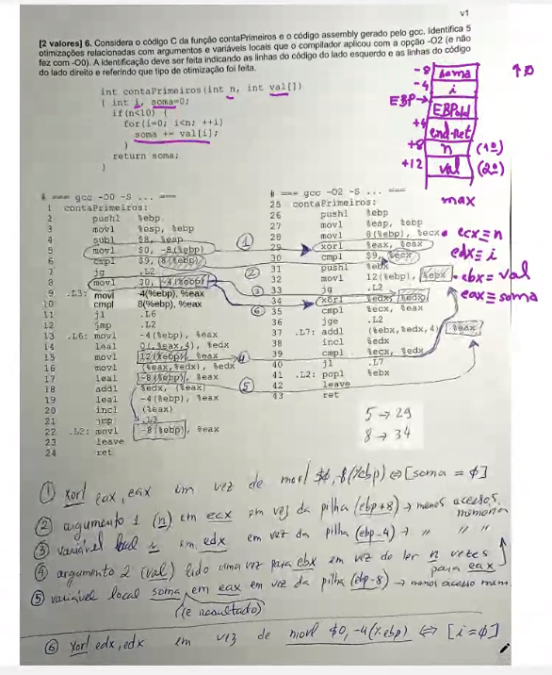 v1
[2 valores] 6. Considera o código C da função contaPrimeiros e o código assembly gerado pelo gcc. Identifica 5
otimizações relacionadas com argumentos e variáveis locais que o compilador aplicou com a opção -O2 (e não
fez com -O0). A identificação deve ser feita indicando as linhas do código do lado esquerdo e as linhas do código
do lado direito e referindo que tipo de otimização foi feita.
int contaPrimeiros(int n, int val[])
{ int i, soma=0;
if(n<10) {
for(i=0; i<n; ++i)
soma += val[i];
}
return soma;
}
-8 soma
-4 i
EBP→ EBPold
+4 end-ret
+8 n (1º)
+12 val (2º)
↑0
max
# === gcc -O0 -S ... ===
1 contaPrimeiros:
2 pushl %ebp
3 movl %esp, %ebp
4 subl $8, %esp
5 movl $0, -8(%ebp)
6 cmpl $9, 8(%ebp)
7 jg .L2
8 movl $0, -4(%ebp)
9 .L3: movl -4(%ebp), %eax
10 cmpl 8(%ebp), %eax
11 jl .L6
12 jmp .L2
13 .L6: movl -4(%ebp), %eax
14 leal 0(,%eax,4), %edx
15 movl 12(%ebp), %eax
16 movl (%eax,%edx), %edx
17 leal -8(%ebp), %eax
18 addl %edx, (%eax)
19 leal -4(%ebp), %eax
20 incl (%eax)
21 jmp .L3
22 .L2: movl -8(%ebp), %eax
23 leave
24 ret
# === gcc -O2 -S ... ===
25 contaPrimeiros:
26 pushl %ebp
27 movl %esp, %ebp
28 movl 8(%ebp), %ecx
29 xorl %eax, %eax
30 cmpl $9, %ecx
31 pushl %ebx
32 movl 12(%ebp), %ebx
33 jg .L2
34 xorl %edx, %edx
35 cmpl %ecx, %eax
36 jge .L2
37 .L7: addl (%ebx,%edx,4), %eax
38 incl %edx
39 cmpl %ecx, %edx
40 jl .L7
41 .L2: popl %ebx
42 leave
43 ret
ecx≡n
edx≡i
ebx≡val
eax≡soma
5 → 29
8 → 34
① xorl eax, eax em vez de movl $0,-8(%ebp) ⇔ [soma = 0]
② argumento 1 (n) em ecx em vez da pilha (ebp+8) → menos acessos memória
③ variável local i em edx em vez da pilha (ebp-4) → " " "
④ argumento 2 (val) lido uma vez para ebx em vez de ler n vezes para eax
⑤ variável local soma em eax em vez da pilha (ebp-8) → menos acesso mem.
(e resultado)
⑥ xorl edx, edx em vez de movl $0,-4(%ebp) ⇔ [i=0]